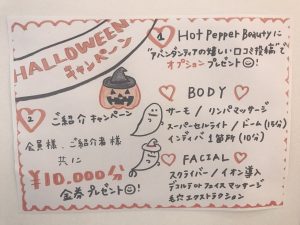 HALLOWEEN
キャンペーン
1 Hot Pepper Beautyに
"アバンダンティアの嬉しい口コミ投稿"で
オプションプレゼント
2 ご紹介キャンペーン
会員様、ご紹介者様
共に
¥10,000分
金券プレゼント
BODY
サーモ/リンパマッサージ
スーパーセルライト/ドーム(15分)
インディバ 1箇所(10分)
FACIAL
スクライバー/イオン導入
デコルテorフェイスマッサージ
毛穴エクストラクション